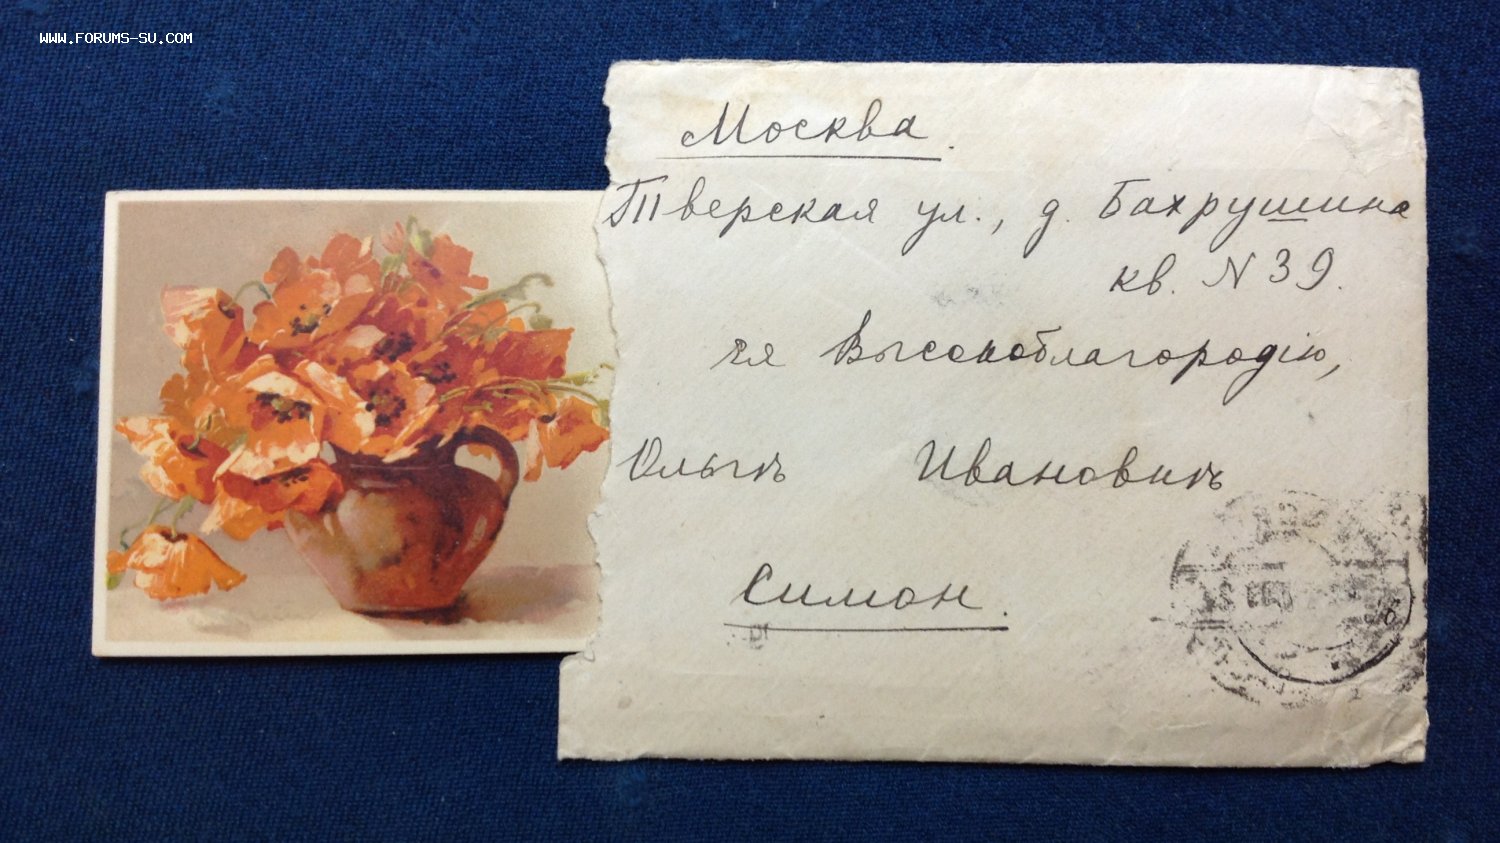 WWW.FORUMS-SU.COM
Москва.
Тверская ул., д. Бахрушина
кв. N 39.
Ея Высокоблагородію,
Ольгѣ Ивановнѣ
Симон.